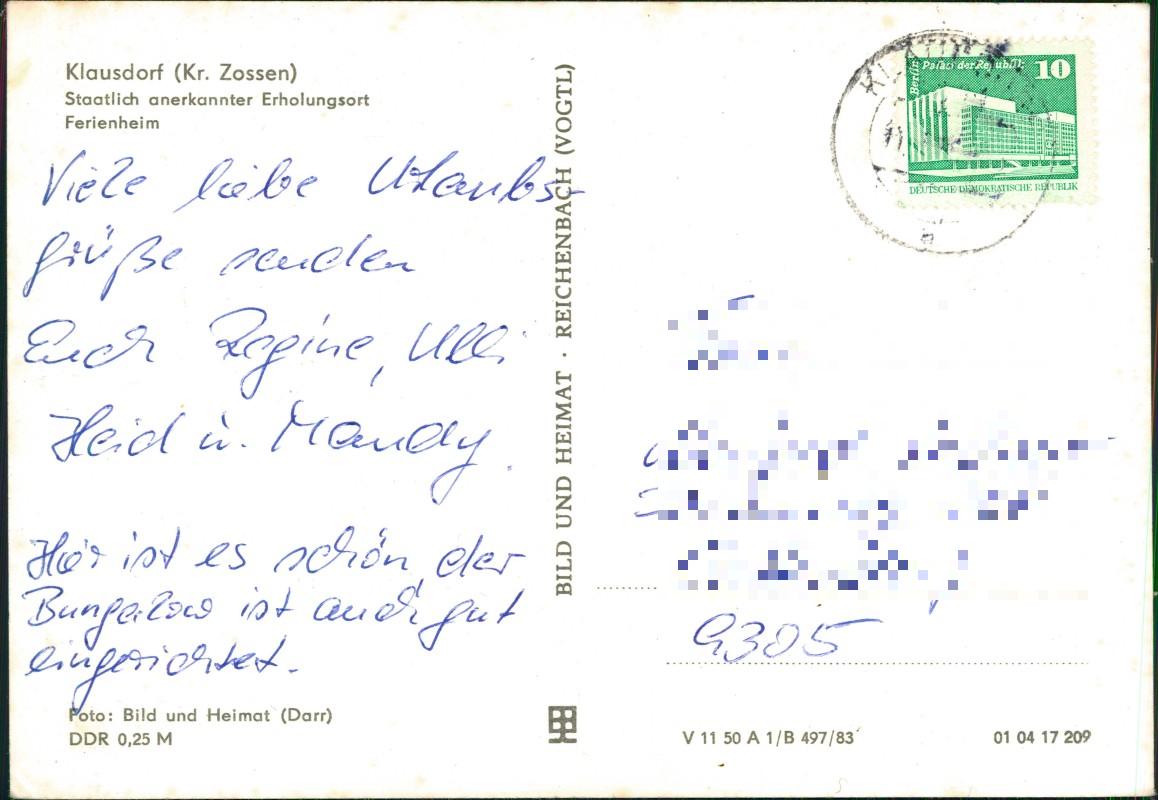 Klausdorf (Kr. Zossen)
Staatlich anerkannter Erholungsort
Ferienheim
Viele liebe Urlaubs-
grüße senden
Euch Regine, Ulli
Heid u. Mandy.
Hier ist es schön, der
Bungalow ist auch gut
eingerichtet.
Foto: Bild und Heimat (Darr)
DDR 0,25 M
BILD UND HEIMAT · REICHENBACH (VOGTL)
Berlin Palast der Republik
10
DEUTSCHE DEMOKRATISCHE REPUBLIK
9305
V 11 50 A 1/B 497/83
01 04 17 209